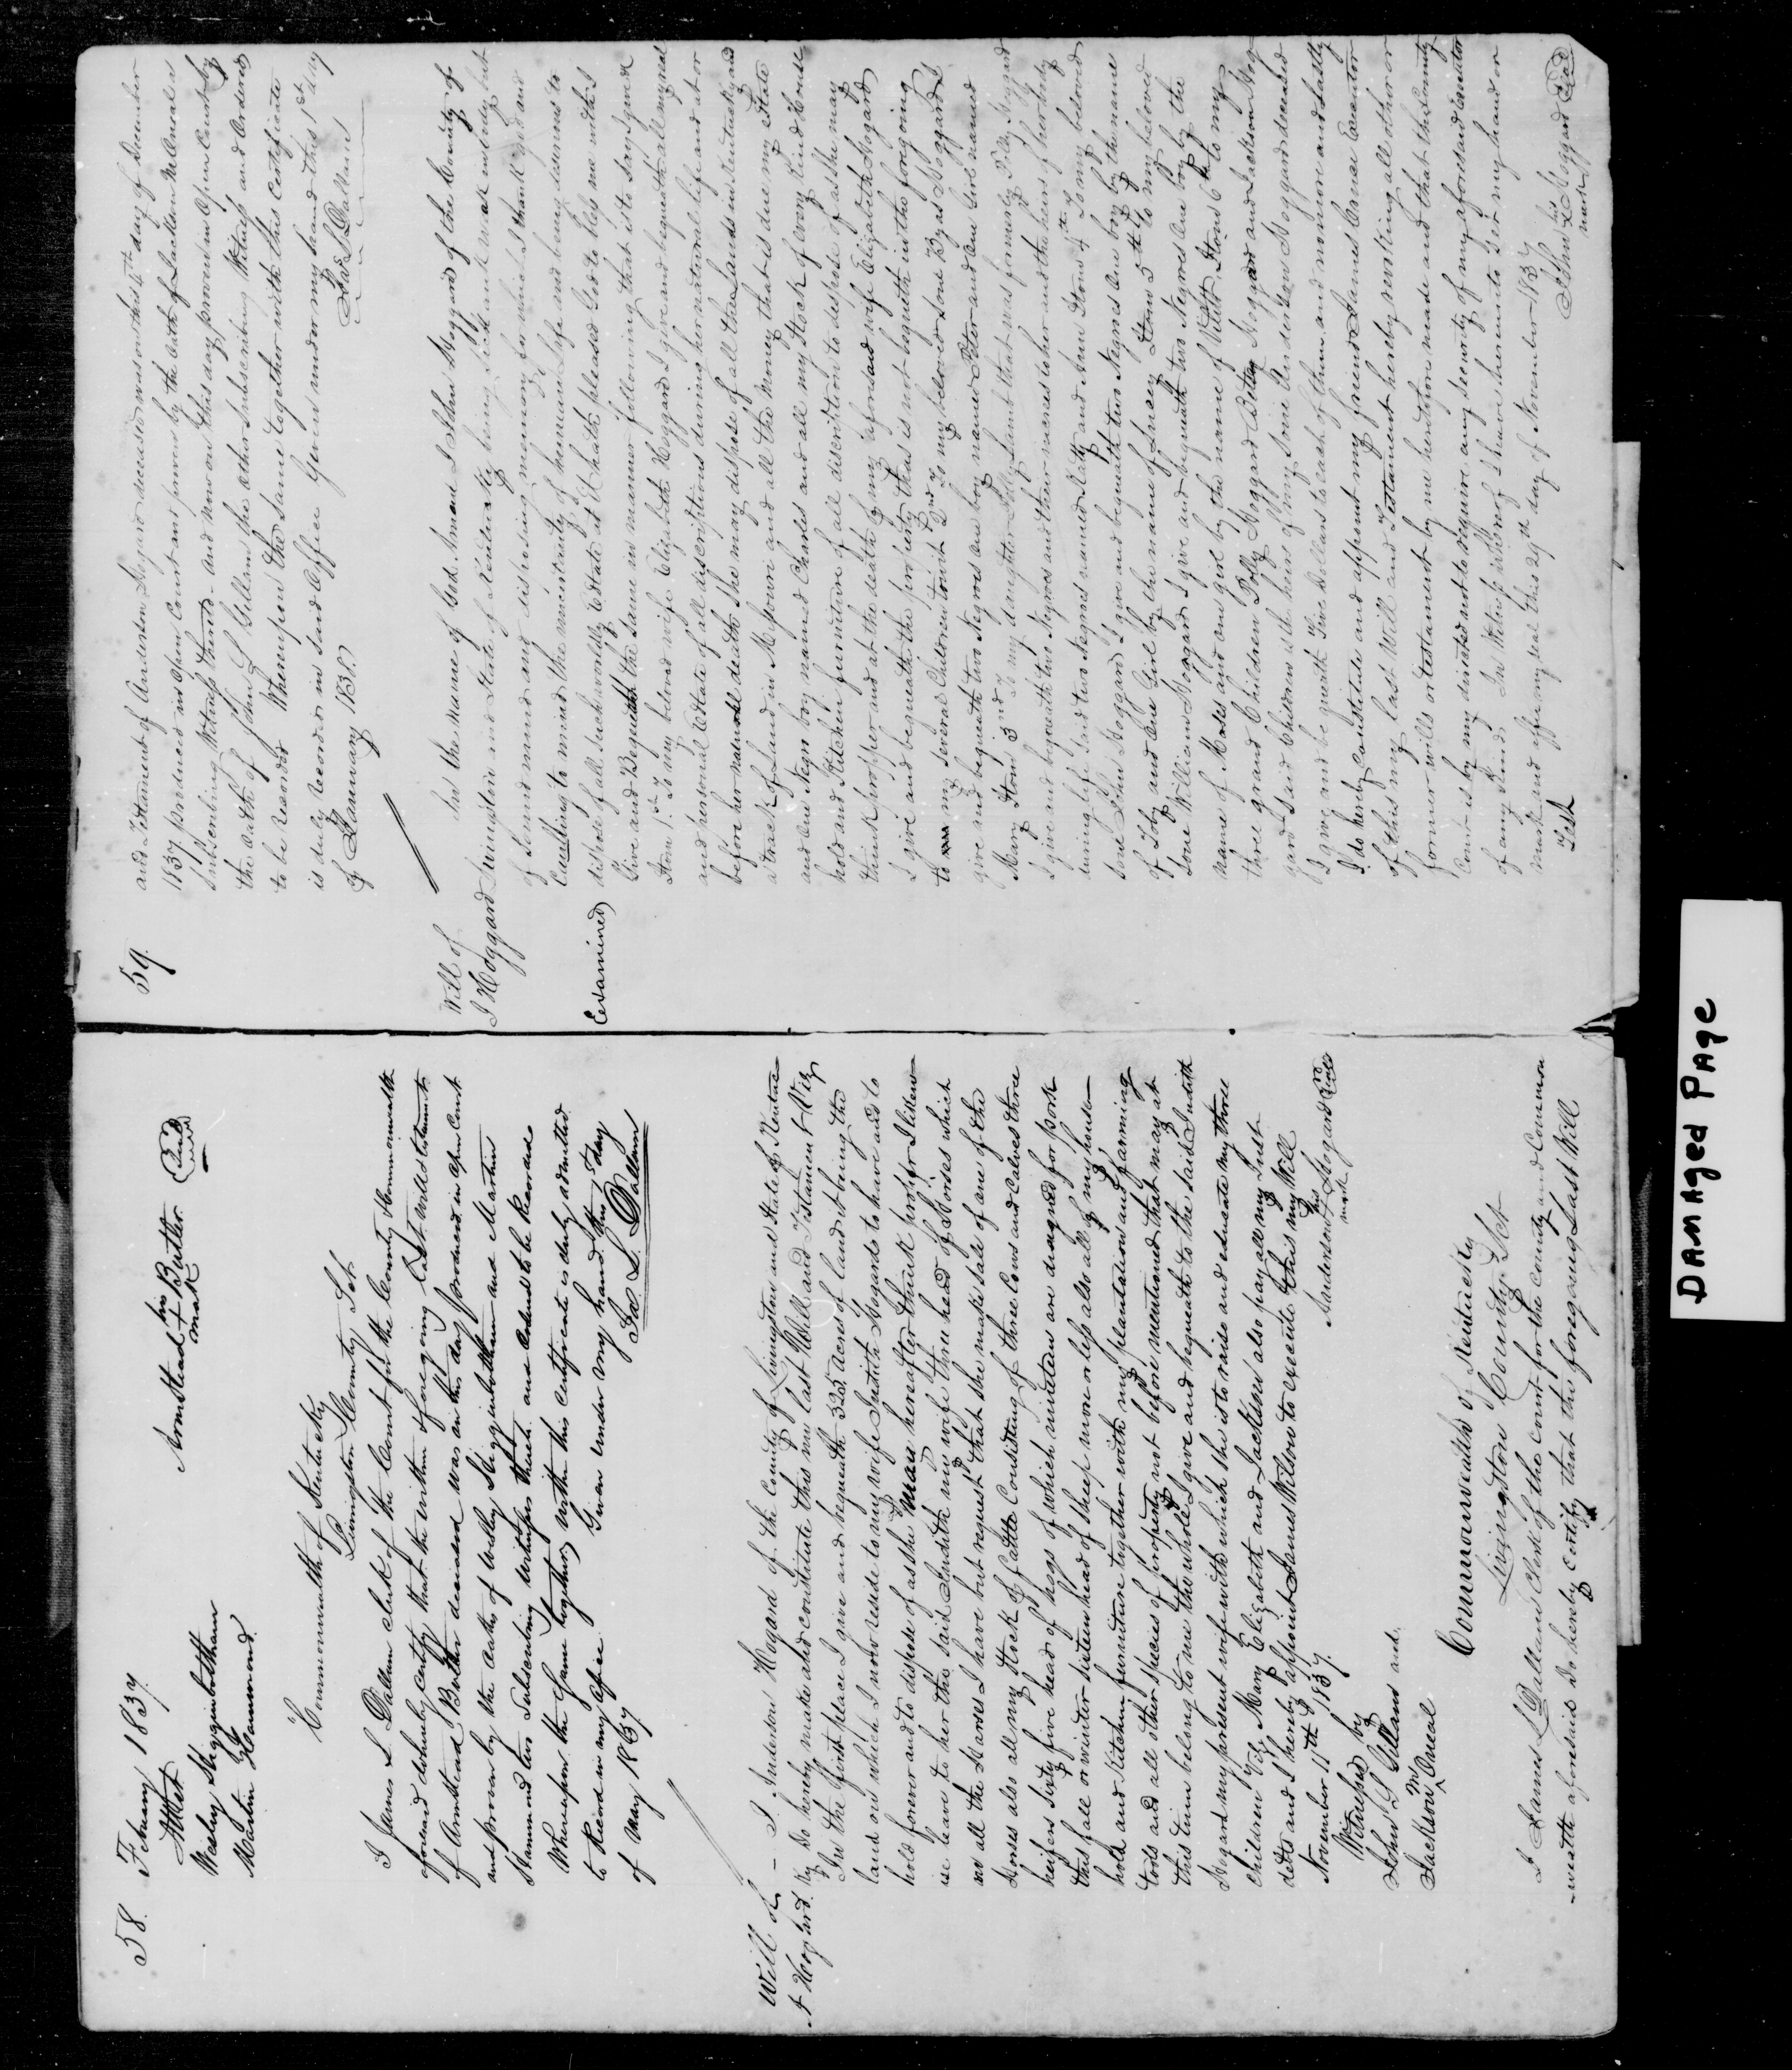 58.
Febuary 1837.
Attest
Wesley Higginbotham
Martin Hammond.
Armstead his + mark Butler Seal
Commonwealth of Kentucky
Livingston County Sct.
I James L. Dallam clerk of the Court for the County & Commonwealth
aforesaid do hereby certify that the within & foregoing last will & testament
of Armstead Butler deceased was on this day produced in open Court
and proven by the oaths of Wesley Higginbotham and Martin
Hammond two Subscribing witnesses thereto and ordered to be Recorded
Whereupon the Same together with this certificate is duly admitted
to Record in my office Given under my hand this 1st day
of May 1837
Jas L. Dallam
Will of
A Hoggard.
I Anderson Hogard of the County of Livingston and State of Kentuc
ky Do hereby make and constitute this my last Will and Testament Viz
In the first place I give and bequeath 325 acres of land it being the
land on which I now reside to my wife Judith Hogard to have and to
hold forever and to dispose of as she may hereafter think prop[er] I likew
ise leave to her the said Judith my wife three head of Horses which
are all the Horses I have but request that she make sale of one of the
Horses also all my Stock of Cattle Consisting of three Cows and Calves three
heifers Sixty five head of hogs of which nineteen are designed for pork
this fall or winter sixteen head of sheep more or less also all of my house
hold and Kitchen furniture together with my plantation and farming
tools and all other species of property not before mentioned that may at
this time belong to me the whole I give and bequeath to the said Judith
Hogard my present wife with which she is to raise and educate my three
Children Viz Mary Elizabeth and Jackson also pay all my Just
debts and I hereby appoint James Wilson to execute this my Will
November 11th 1837.
Anderson his + mark Hogard Seal
Witnessed by
John L Gillam and
Jackson Mc Oneal
Commonwealth of Kentucky
Livingston County Sct
I James L Dallam Clerk of the court for the county and Common
wealth aforesaid do hereby Certify that the foregoing Last Will
59.
and Testament of Anderson Hogard deceased was on this 4th day of December
1837 produced in Open Court and proven by the Oath of Jackson McOneal a
Subscribing Witness thereto and now on this day proven in Open Court by
the Oath of John L Gillam the other subscribing Witness and Ordered
to be recorded Whereupon the same together with this Certificate
is duly recorded in said Office Given under my hand this 1st day
of January 1838.
Jas L Dallam
Will of
J Hoggard
Examined
In the name of God Amen I John Hoggard of the County of
Livingston and State of Kentucky being sick and weak in body but
of sound mind and disposing memory for which I thank god and
Calling to mind the uncertainty of human Life and being desirous to
dispose of all such worldly Estate as it hath pleased God to bless me with I
Give and Bequeath the same in manner following that is to say
Item 1st To my beloved wife Elizabeth Hoggard I give and bequeath all my real
and personal Estate of all discriptions during her natural life and at or
before her natural death she may dispose of all the Lands in Kentucky and
a track of Land in Missouri and all the money that is due my Estate
and one Negro boy named Charles and all my Stock of every kind House
hold and Kitchen furniture of all discription to dispose of as she may
think prosper and at the death of my aforesaid wife Elizabeth Hoggard
I give and bequeath the property that is not bequeth in the foregoing
to my several Children to wit 2nd To my beloved son Byas Hoggard I
give and bequeath two Negroes one boy named Peter and one Girl named
Mary Item 3nd To my daughter Polly Lamb that was formerly Polly Hoggard
I give and bequeath two Negroes and their increases to her and the heirs of her body
during life said two Negroes named Katty and Ann Item 4th To my beloved
son John Hoggard I give and bequeath two Negroes one boy by the name
of Toby and one Girl by the name of Lucey Item 5th To my beloved
sone William Hoggard I give and bequeath two Negroes one boy by the
name of Moses and one girl by the name of Milly Item 6th to my
three grand Children Polly Hoggard Betsy Hoggard and Jackson Hog
gard said Children is the heirs of my sone Anderson Hoggard deceased
I give and bequeath Five Dollars to each of them and no more and lastly
I do hereby Constitute and appoint my friend James Cruse Executor
of this my last Will and Testament hereby revoking all other or
former wills or testament by me heretofore made and that the County
Court is by my directed not to require any security of my aforesaid Executor
of any kind. In Witness whereof I have hereunto set my hand or
mark and affix my seal this 29th day of November 1837
Test
John his X mark Hoggard Seal
DAMAGED PAGE